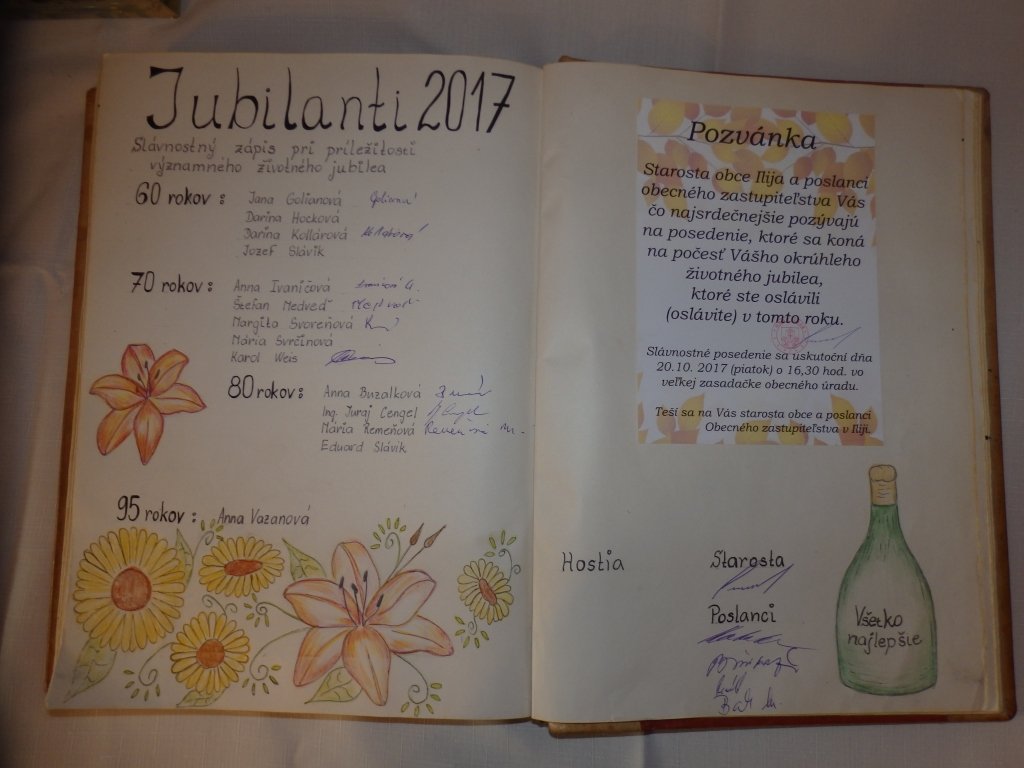 Jubilanti 2017
Slávnostný zápis pri príležitosti
významného životného jubilea
60 rokov : Jana Golianová
Darina Hocková
Darina Kollárová
Jozef Slávik
70 rokov : Anna Ivaničová
Štefan Medveď
Margita Svoreňová
Mária Svrčinová
Karol Weis
80 rokov : Anna Buzalková
Ing. Juraj Cengel
Mária Remeňová
Eduard Slávik
95 rokov : Anna Vazanová
Pozvánka
Starosta obce Ilija a poslanci
obecného zastupiteľstva Vás
čo najsrdečnejšie pozývajú
na posedenie, ktoré sa koná
na počesť Vášho okrúhleho
životného jubilea,
ktoré ste oslávili
(oslávite) v tomto roku.
Slávnostné posedenie sa uskutoční dňa
20.10. 2017 (piatok) o 16,30 hod. vo
veľkej zasadačke obecného úradu.
Teší sa na Vás starosta obce a poslanci
Obecného zastupiteľstva v Iliji.
Hostia
Starosta
Poslanci
Všetko
najlepšie